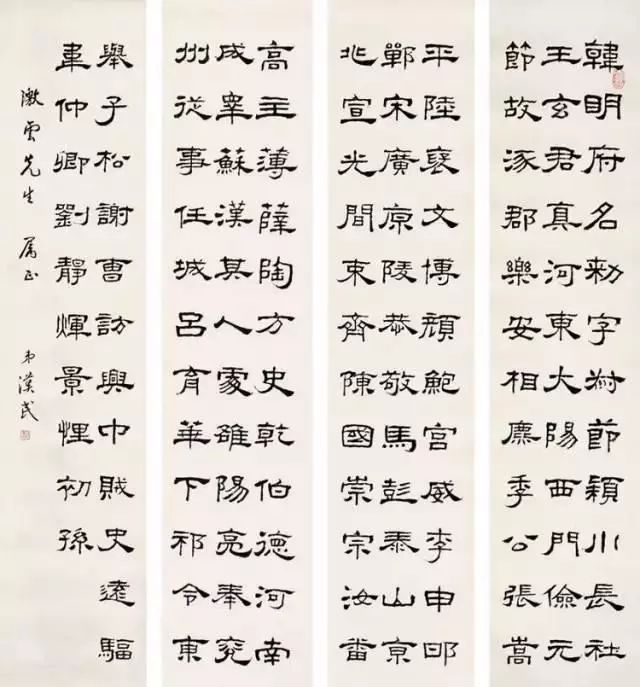 韓明府名勑字叔節穎川長社
王玄君真河東大陽西門儉元
節故涿郡樂安相麃季公張嵩
平陸襃文博顏鮑宮威李申邯
鄲宋廣原陵恭敬馬彭泰山京
北宣光間束齊陳國崇宗汝番
高主薄薛陶方史乾伯德河南
成睪蘇漢其人處雒陽亮奉兗
州從事任城呂育華下邳令東
舉子松謝曹訪興中賊史遠驅
韋仲卿劉靜煇景悝初孫
澂雲先生 屬正 弟漢民